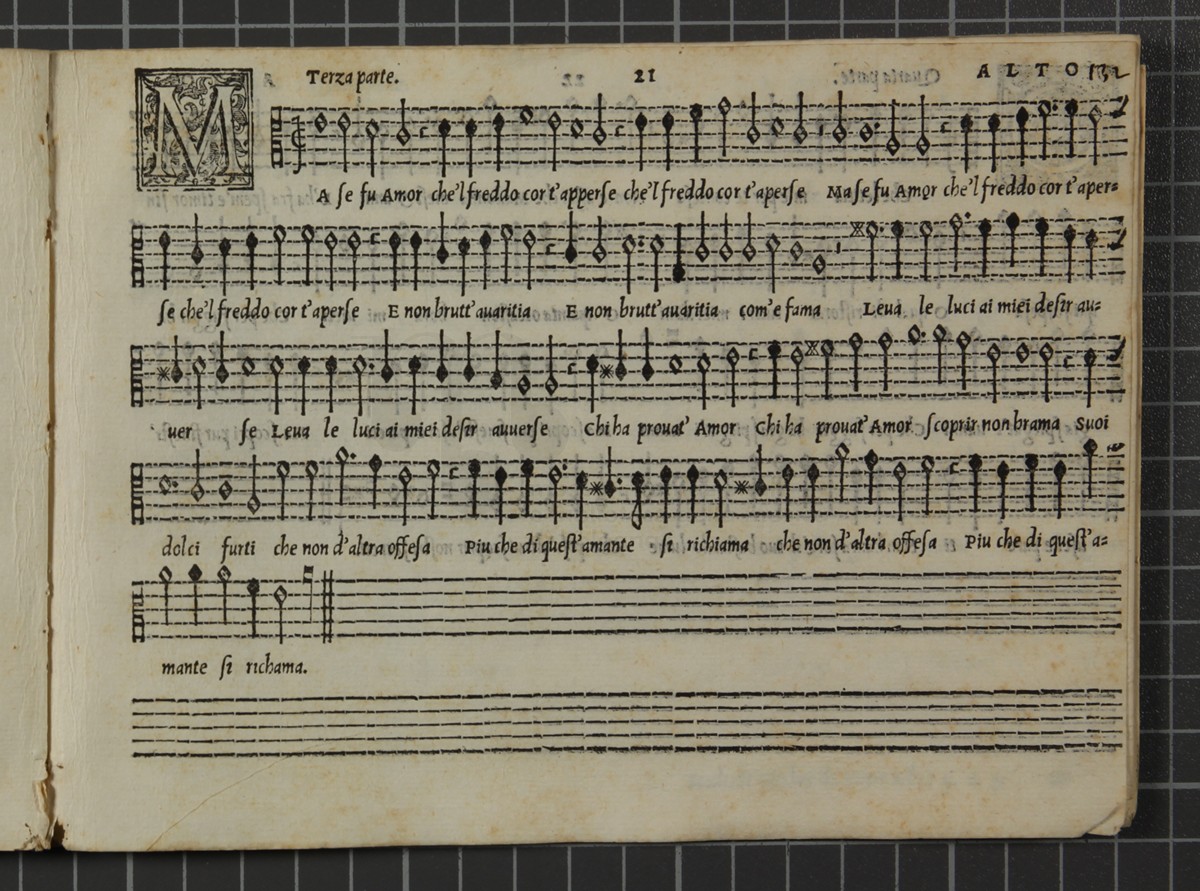 Terza parte. 21 ALTO 132
MA se fu Amor che'l freddo cor t'apperse che'l freddo cor t'aperse Ma se fu Amor che'l freddo cor t'aper=
se che'l freddo cor t'aperse E non brutt'auaritia E non brutt'auaritia com'e fama Leua le luci ai miei desir au=
uer se Leua le luci ai miei desir auuerse Chi ha prouat' Amor Chi ha prouat' Amor scoprir non brama Suoi
dolci furti che non d'altra offesa Piu che di quest'amante si richiama che non d'altra offesa Piu che di quest'a=
mante si richama.